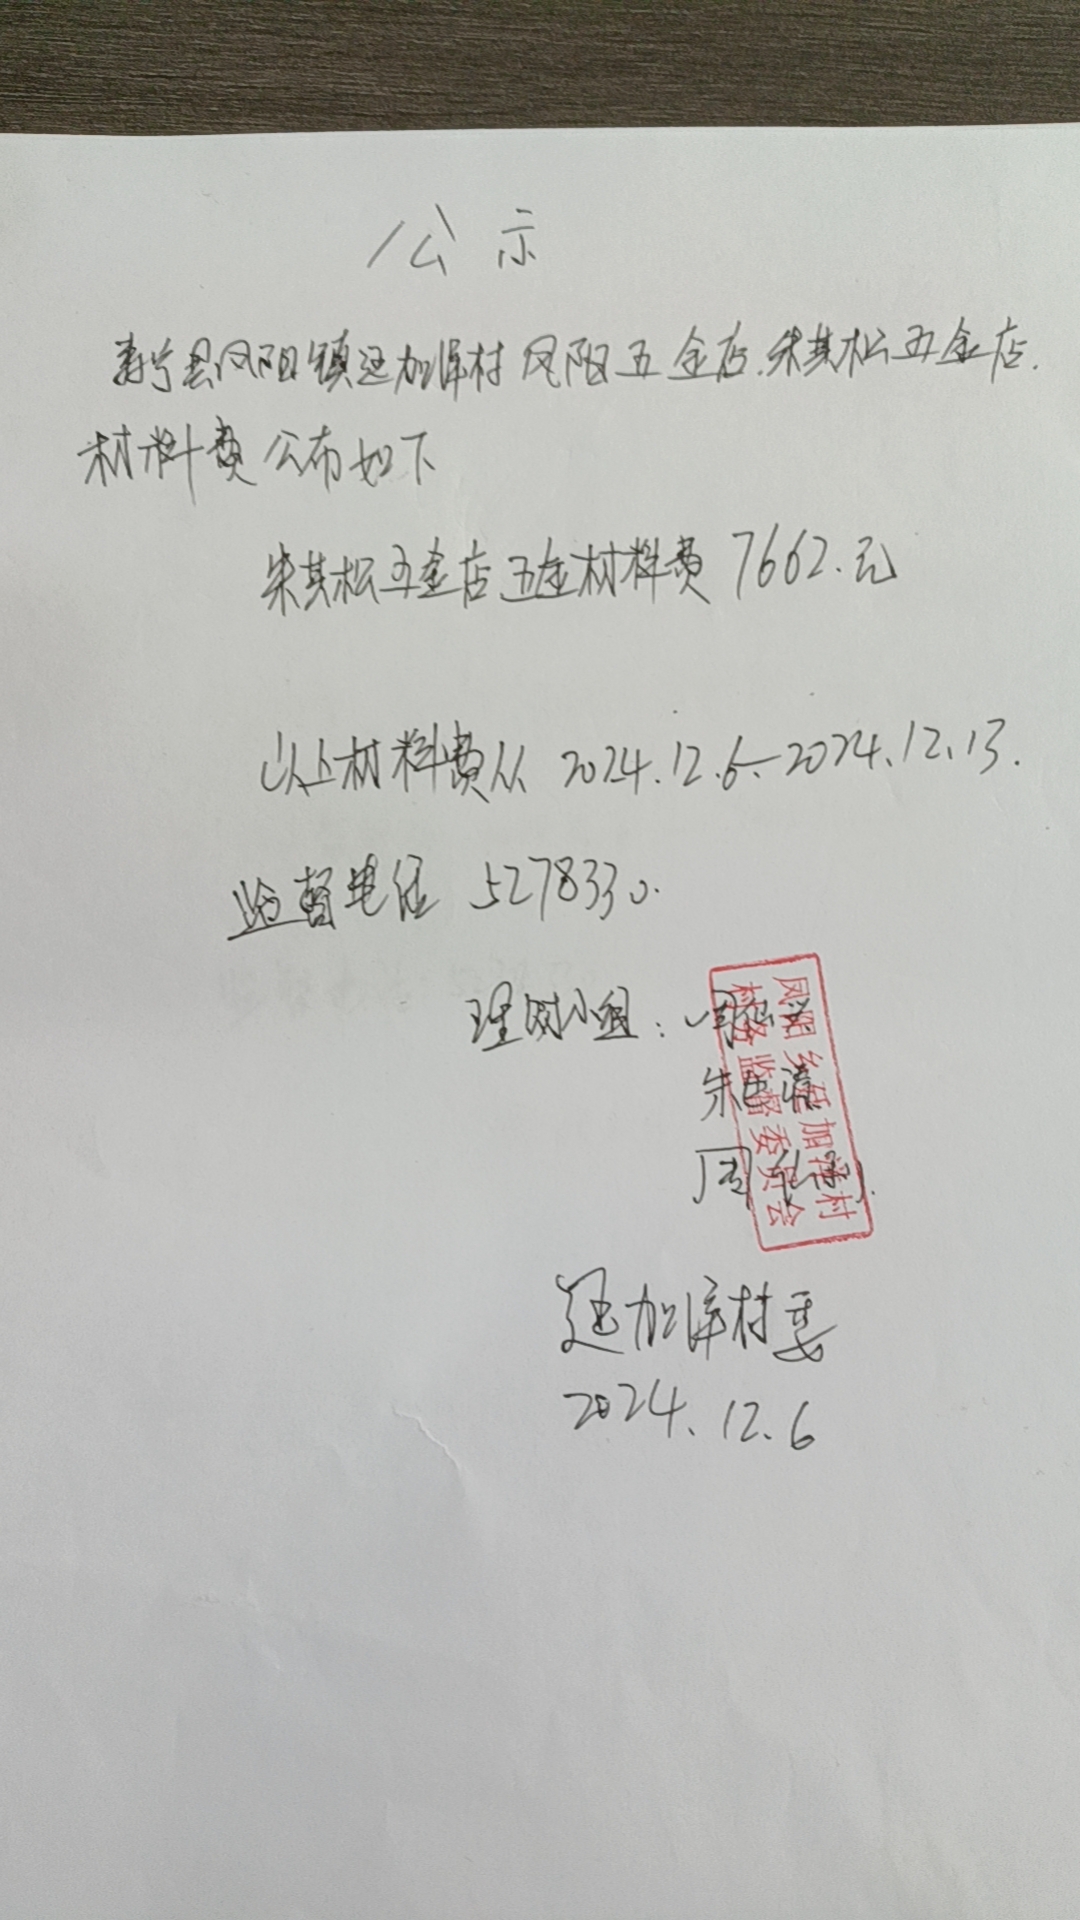 公示
寿宁县凤阳镇廷加洋村 凤阳五金店.朱其松五金店.
材料费公布如下
朱其松五金店五金材料费 7662.元
以上材料费从 2024.12.6-2024.12.13.
监督电话 5278330.
理财小组:
朱
周
凤阳乡 加洋村
村务监督委员会
加洋村委
2024.12.6